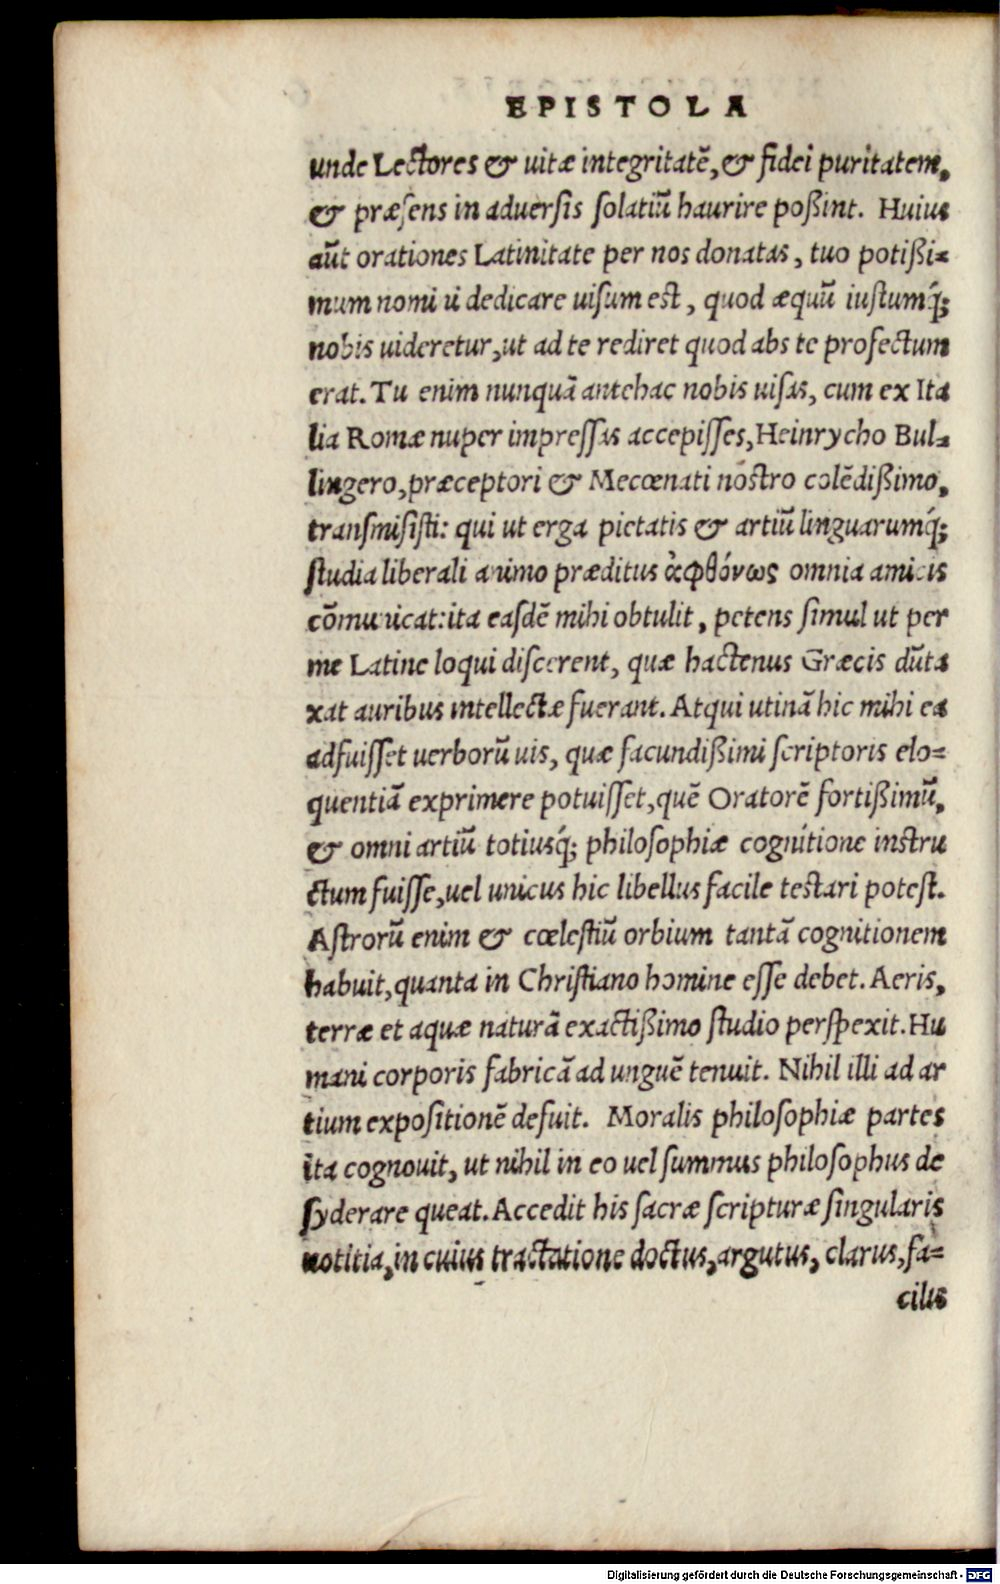 EPISTOLA
unde Lectores & uitæ integritatẽ, & fidei puritatem,
& præsens in aduersis solatiũ haurire poßint. Huius
aũt orationes Latinitate per nos donatas, tuo potißi=
mum nomi i dedicare uisum est, quod æquũ iustumq́;
nobis uideretur, ut ad te rediret quod abs te profectum
erat. Tu enim nunquã antehac nobis uisas, cum ex Ita
lia Romæ nuper impressas accepisses, Heinrycho Bul=
lingero, præceptori & Mecœnati nostro colẽdißimo,
transmisisti: qui ut erga pietatis & artiũ linguarumq́;
studia liberali animo præditus ἀφθόνως omnia amicis
cõmunicat: ita easdẽ mihi obtulit, petens simul ut per
me Latine loqui discerent, quæ hactenus Græcis dũta
xat auribus intellectæ fuerant. Atqui utinã hic mihi ea
adfuisset uerborũ uis, quæ facundißimi scriptoris elo=
quentiã exprimere potuisset, quẽ Oratorẽ fortißimũ,
& omni artiũ totiusq́; philosophiæ cognitione instru
ctum fuisse, uel unicus hic libellus facile testari potest.
Astrorũ enim & cœlestiũ orbium tantã cognitionem
habuit, quanta in Christiano homine esse debet. Aeris,
terræ et aquæ naturã exactißimo studio perspexit. Hu
mani corporis fabricã ad unguẽ tenuit. Nihil illi ad ar
tium expositionẽ defuit. Moralis philosophiæ partes
ita cognouit, ut nihil in eo uel summus philosophus de
syderare queat. Accedit his sacræ scripturæ singularis
notitia, in cuius tractatione doctus, argutus, clarus, fa=
cilis
Digitalisierung gefördert durch die Deutsche Forschungsgemeinschaft - DFG